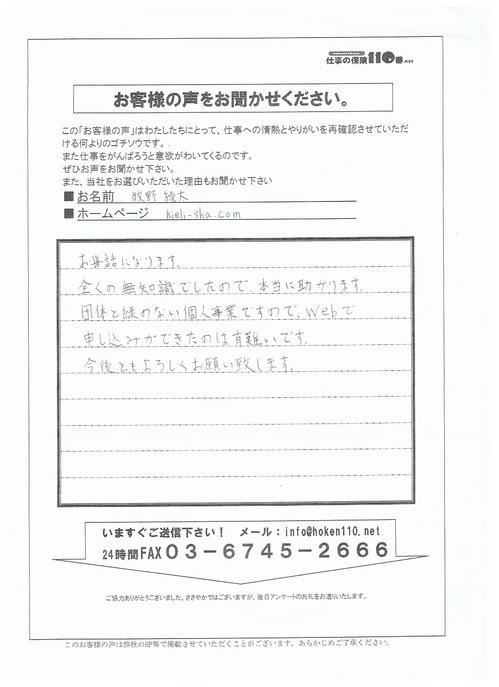 仕事の保険110番.net
お客様の声をお聞かせください。
この「お客様の声」はわたしたちにとって、仕事への情熱とやりがいを再確認させていただ
ける何よりのゴチソウです。.
また仕事をがんばろうと意欲がわいてくるのです。
ぜひお声をお聞かせ下さい。
また、当社をお選びいただいた理由もお聞かせ下さい
■お名前 牧野 綾太
■ホームページ kieli-sha.com
お世話になります。
全くの無知識でしたので、本当に助かります。
団体と縁のない個人事業ですので、Webで
申し込みができたのは有難いです。
今後ともよろしくお願い致します。
いますぐご送信下さい! メール:info@hoken110.net
24時間FAX03-6745-2666
ご協力ありがとうございました。ささやかではございますが、後日アンケートのお礼をお送りいたします。
このお客様の声は弊社のHP等で掲載させていただくことがございます。あらかじめご了承ください。